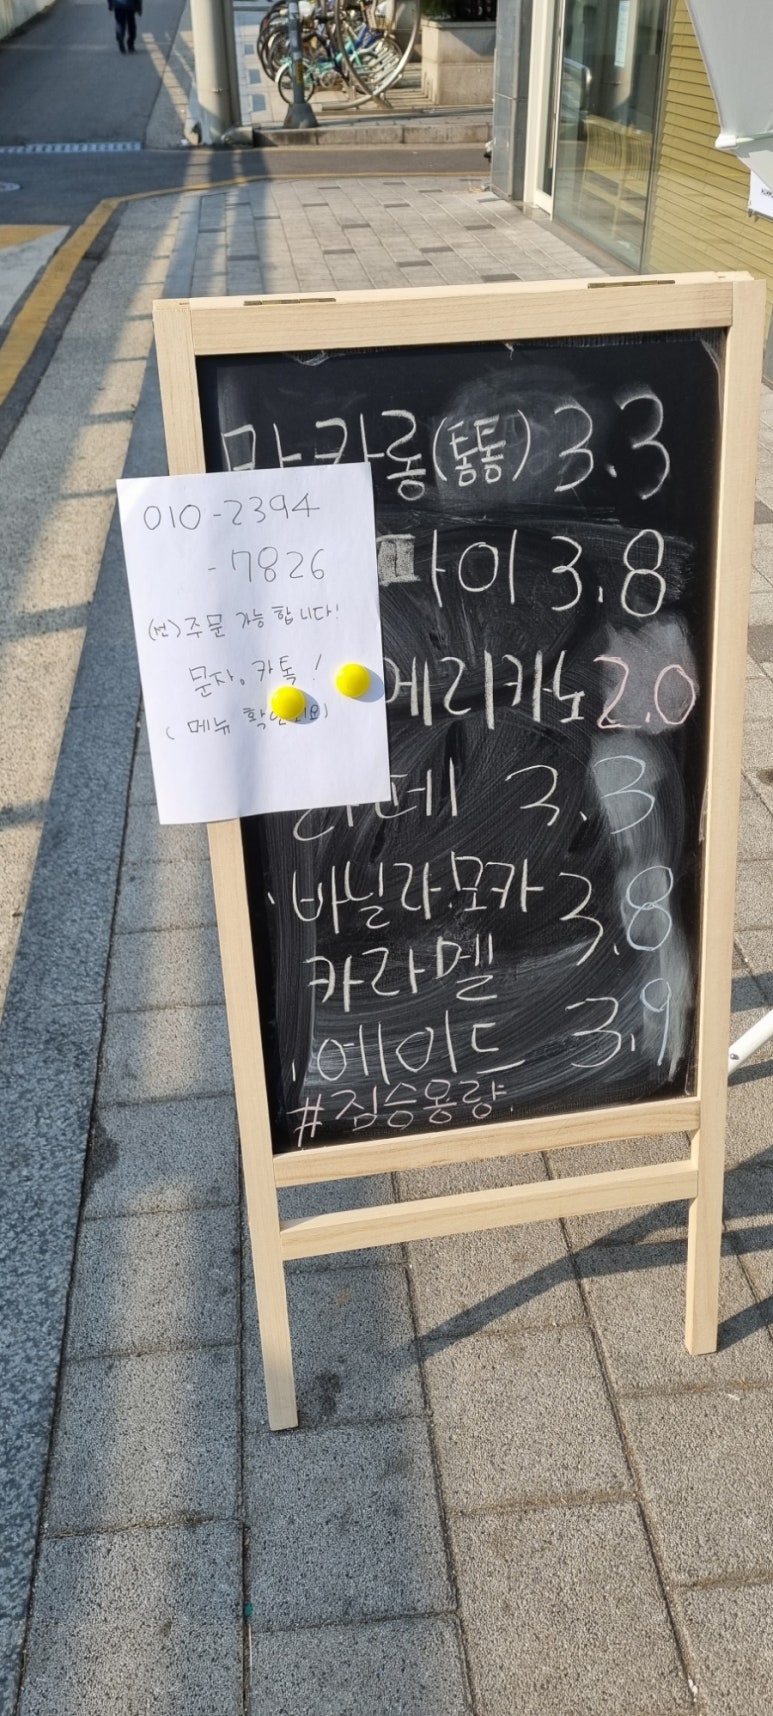 마카롱(통통) 3.3
파이 3.8
메리카노 2.0
라떼 3.3
바닐라.모카 3.8
카라멜
에이드 3.9
#짐승용량
010-2394
-7826
(선)주문 가능합니다!
문자. 카톡!
(메뉴